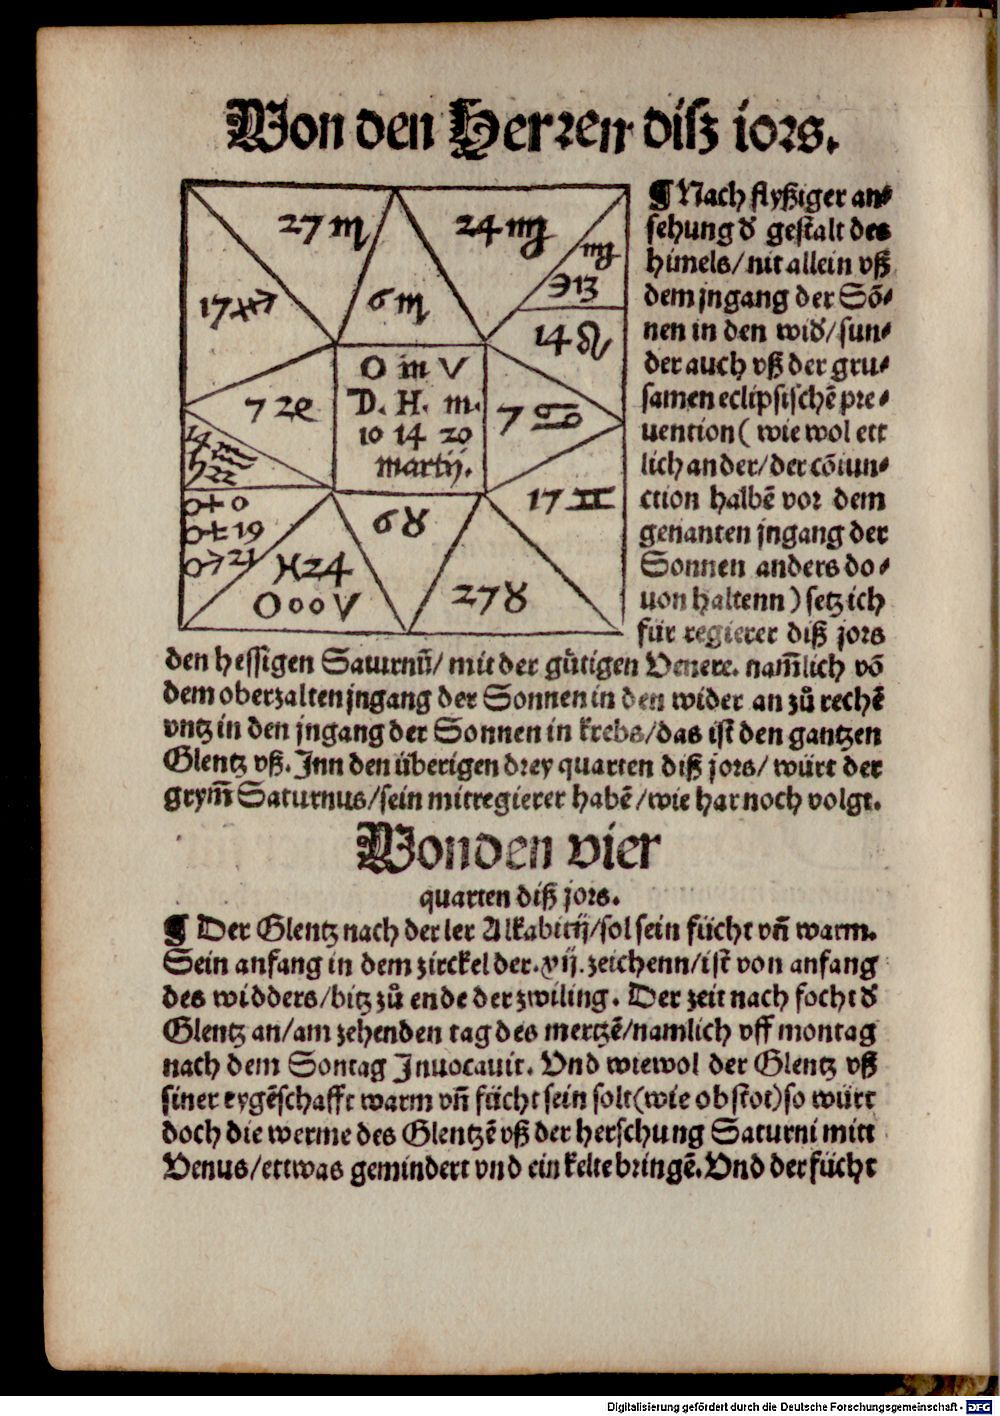 Von den Herren diſz iors.
27 ♏ 24 ♍
♍
913
17 ♐ 6 ♏
14 ♌
O in V
7 D. H. m. 7 ♋
10 14 20
martij.
17 ♊
♂ 19
6 ♉
♓ 24
27 ♉
¶ Nach flyßiger an⸗
ſehung d̕ geſtalt des
himels/ nit allein vß
dem jngang der Sō⸗
nen in den wid̕/ ſun⸗
der auch vß der gru⸗
ſamen eclipſiſchē pre⸗
uention ( wie wol ett
lich an der/ der cōiun⸗
ction halbē vor dem
genanten jngang der
Sonnen anders do⸗
uon haltenn ) ſetz ich
für regierer diß jors
den heſſigen Saturnū/ mit der gůtigen Venere. nam̄lich vō
dem oberzalten jngang der Sonnen in den wider an zů rechē
vntz in den jngang der Sonnen in krebs/ das iſt den gantzen
Glentz vß. Inn den überigen drey quarten diß jors/ würt der
grym̄ Saturnus/ ſein mitregierer habē/ wie har noch volgt.
Von den vier
quarten diß jors.
¶ Der Glentz nach der ler Alkabitij/ ſol ſein fücht vn̄ warm.
Sein anfang in dem zirckel der .xij. zeichenn/ iſt von anfang
des widders/ bitz zů ende der zwiling. Der zeit nach focht d̕
Glentz an/ am zehenden tag des mertzē/ namlich vff montag
nach dem Sontag Inuocauit. Vnd wiewol der Glentz vß
ſiner eygēſchafft warm vn̄ fücht ſein ſolt (wie obſtot) ſo würt
doch die werme des Glentzē vß der herſchung Saturni mitt
Venus/ ettwas gemindert vnd ein kelte bringē. Vnd der fücht
Digitalisierung gefördert durch die Deutsche Forschungsgemeinschaft - DFG